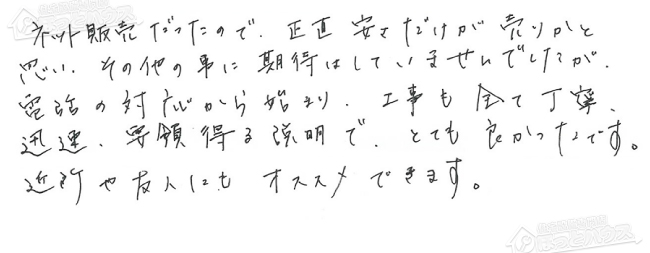 ネット販売だったので、正直安さだけが売りかと
思い、その他の事に期待はしていませんでしたが、
電話の対応から始まり、工事も全て丁寧、
迅速、要領得る説明で、とても良かったです。
近所や友人にもオススメできます。